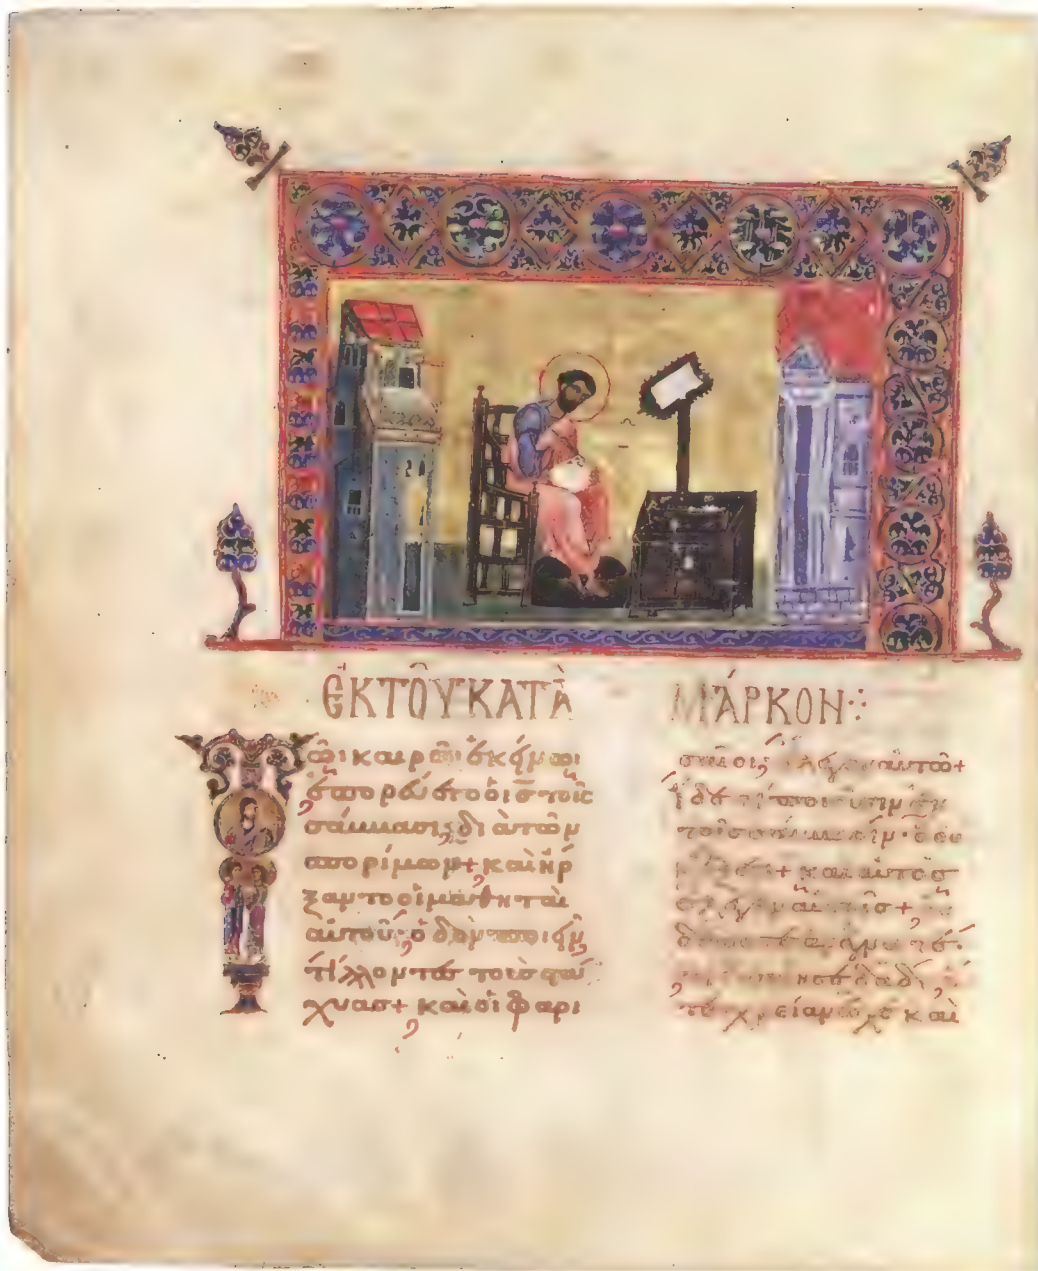 ἘΚ ΤΟΥ͂ ΚΑΤᾺ ΜΆΡΚΟΝ
Τῶι καιρῶι ἐκείνωι
ἐπορεύετο ὁ ις τοῖς
σάββασι, διὰ τῶν
σπορίμων+ καὶ ἤρ
ξαντο οἱ μαθηταὶ
αὐτοῦ, ὁδὸν ποιεῖν
τίλλοντες τοὺς στά
χυας+ καὶ οἱ φαρι
σαῖοι ἔλεγον αὐτῶ+
ἴδε τί ποιοῦσιν ἐν
τοῖς σάββασιν· ὃ οὐ
ἔξεστι+ καὶ αὐτὸς
ἔλεγεν αὐτοῖς+
τε χρείαν ἔσχε καὶ